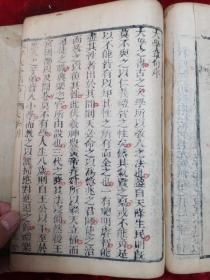 大學章句序
大學之書古之大學所以教人之法也蓋自天降生民則既
莫不與之以仁義禮智之性矣然其氣質之稟或不能齊是
以不能皆有以知其性之所有而全之也一有聰明睿智能
盡其性者出於其間則天必命之以為億兆之君師使之治
而教之以復其性此伏羲神農黃帝堯舜所以繼天立極而
司徒之職典樂之官所由設也三代之隆其法寖備然後王
宮國都以及閭巷莫不有學人生八歲則自王公以下至於庶
人之子弟皆入小學而教之以灑掃應對進退之節